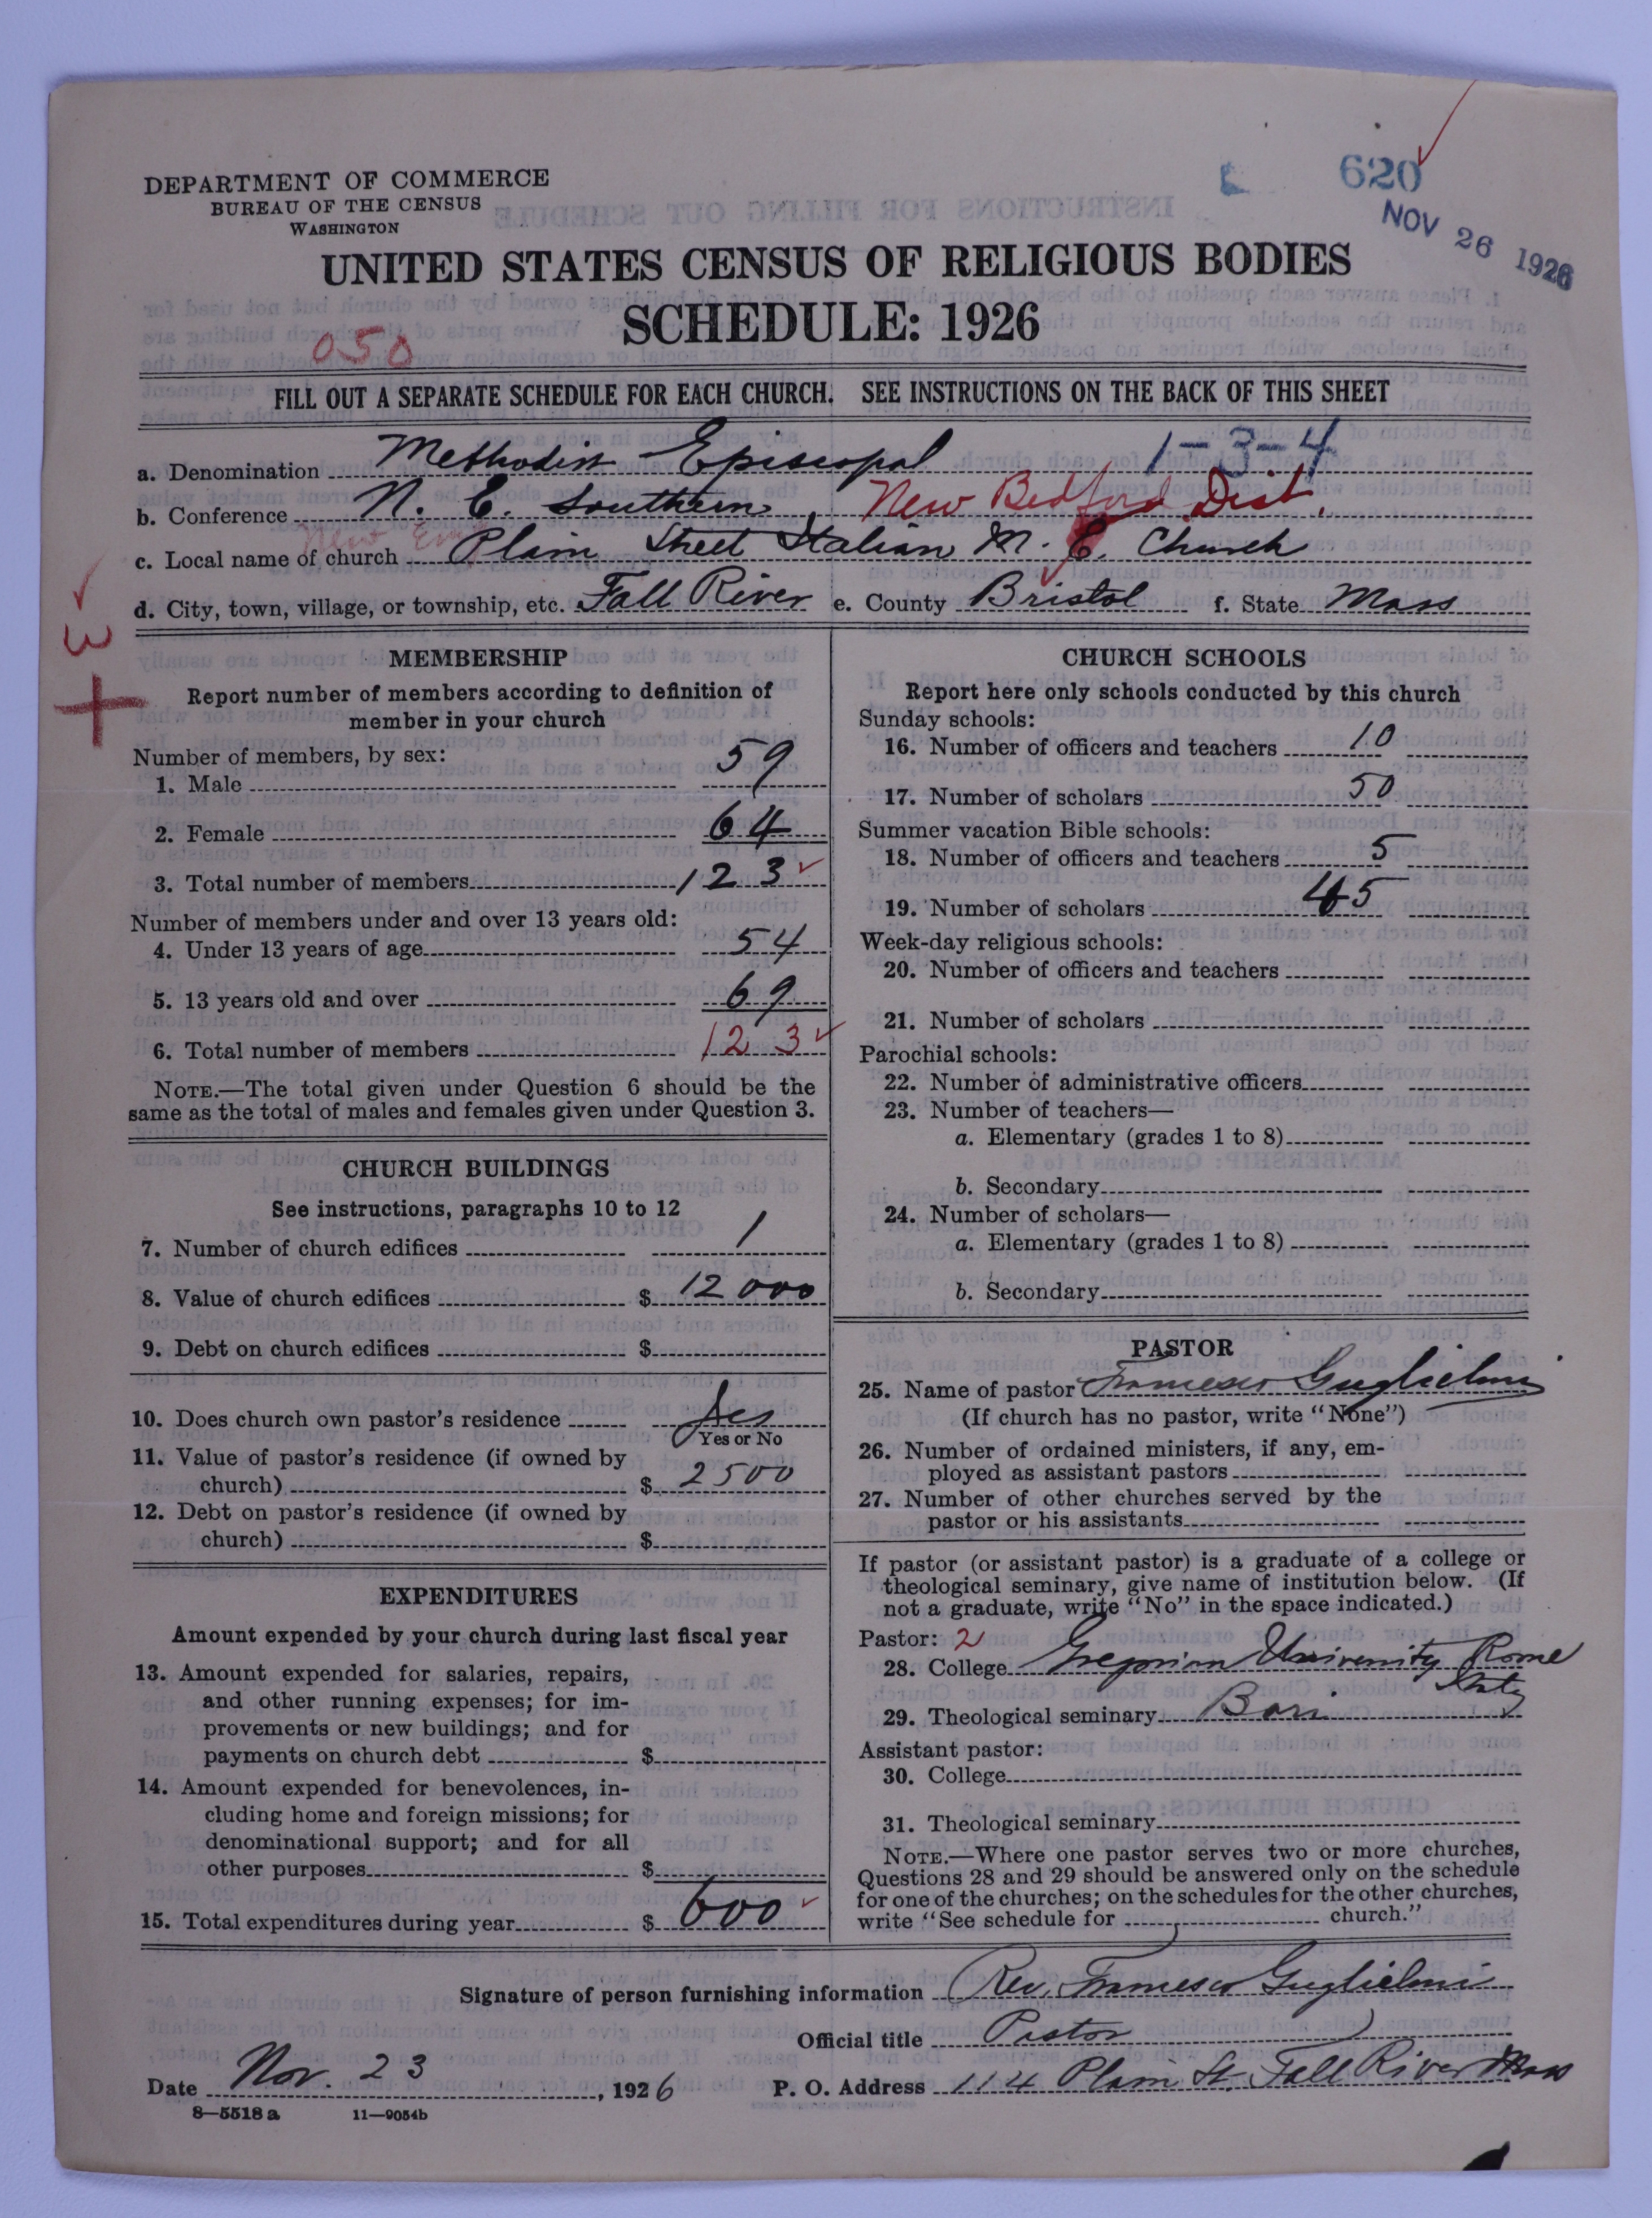 620
NOV 26 1926
DEPARTMENT OF COMMERCE
BUREAU OF THE CENSUS
WASHINGTON
UNITED STATES CENSUS OF RELIGIOUS BODIES
SCHEDULE: 1926
050
FILL OUT A SEPARATE SCHEDULE FOR EACH CHURCH. SEE INSTRUCTIONS ON THE BACK OF THIS SHEET
a. Denomination Methodist Episcopal 1-3-4
b. Conference N. E. Southern, New Bedford Dist.
c. Local name of church Plain Street Italian M. E. Church
d. City, town, village, or township, etc. Fall River e. County Bristol f. State Mass
MEMBERSHIP
Report number of members according to definition of
member in your church
Number of members, by sex:
1. Male 59
2. Female 64
3. Total number of members 123
Number of members under and over 13 years old:
4. Under 13 years of age 54
5. 13 years old and over 69
6. Total number of members 123
NOTE.—The total given under Question 6 should be the
same as the total of males and females given under Question 3.
CHURCH BUILDINGS
See instructions, paragraphs 10 to 12
7. Number of church edifices 1
8. Value of church edifices $ 12000
9. Debt on church edifices $
10. Does church own pastor's residence Yes
Yes or No
11. Value of pastor's residence (if owned by
church) $ 2500
12. Debt on pastor's residence (if owned by
church) $
EXPENDITURES
Amount expended by your church during last fiscal year
13. Amount expended for salaries, repairs,
and other running expenses; for im-
provements or new buildings; and for
payments on church debt $
14. Amount expended for benevolences, in-
cluding home and foreign missions; for
denominational support; and for all
other purposes $
15. Total expenditures during year $ 600
CHURCH SCHOOLS
Report here only schools conducted by this church
Sunday schools:
16. Number of officers and teachers 10
17. Number of scholars 50
Summer vacation Bible schools:
18. Number of officers and teachers 5
19. Number of scholars 45
Week-day religious schools:
20. Number of officers and teachers
21. Number of scholars
Parochial schools:
22. Number of administrative officers
23. Number of teachers—
a. Elementary (grades 1 to 8)
b. Secondary
24. Number of scholars—
a. Elementary (grades 1 to 8)
b. Secondary
PASTOR
25. Name of pastor Francesco Guglielmi
(If church has no pastor, write "None")
26. Number of ordained ministers, if any, em-
ployed as assistant pastors
27. Number of other churches served by the
pastor or his assistants
If pastor (or assistant pastor) is a graduate of a college or
theological seminary, give name of institution below. (If
not a graduate, write "No" in the space indicated.)
Pastor: 2
28. College Gregorian University Rome
Italy
29. Theological seminary Bari
Assistant pastor:
30. College
31. Theological seminary
NOTE.—Where one pastor serves two or more churches,
Questions 28 and 29 should be answered only on the schedule
for one of the churches; on the schedules for the other churches,
write "See schedule for church."
Signature of person furnishing information Rev. Francesco Guglielmi
Official title Pastor
Date Nov. 23, 1926 P. O. Address 114 Plain St. Fall River Mass
8—5518 a 11—9054b